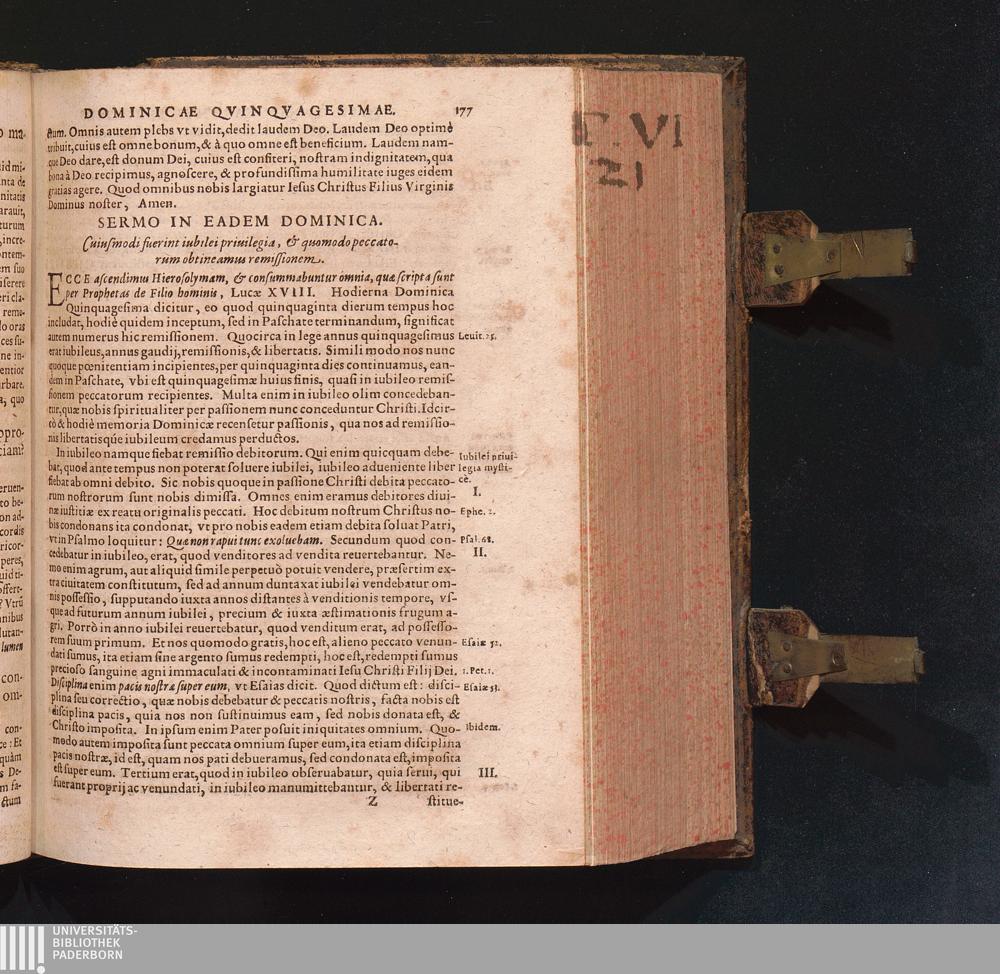 DOMINICAE QVINQVAGESIMAE. 177
ctum. Omnis autem plebs vt vidit, dedit laudem Deo. Laudem Deo optimè
tribuit, cuius est omne bonum, & à quo omne est beneficium. Laudem nam-
que Deo dare, est donum Dei, cuius est confiteri, nostram indignitatem, qua
bona à Deo recipimus, agnoscere, & profundissima humilitate iuges eidem
gratias agere. Quod omnibus nobis largiatur Iesus Christus Filius Virginis
Dominus noster, Amen.
SERMO IN EADEM DOMINICA.
Cuiusmodi fuerint iubilei priuilegia, & quomodo peccato-
rum obtineamus remissionem.
ECCE ascendimus Hierosolymam, & consummabuntur omnia, quæ scripta sunt
per Prophetas de Filio hominis, Lucæ XVIII. Hodierna Dominica
Quinquagesima dicitur, eo quod quinquaginta dierum tempus hoc
includat, hodiè quidem inceptum, sed in Paschate terminandum, significat
autem numerus hic remissionem. Quocirca in lege annus quinquagesimus Leuit. 25.
erat iubileus, annus gaudij, remissionis, & libertatis. Simili modo nos nunc
quoque pœnitentiam incipientes, per quinquaginta dies continuamus, ean-
dem in Paschate, vbi est quinquagesimæ huius finis, quasi in iubileo remis-
sionem peccatorum recipientes. Multa enim in iubileo olim concedeban-
tur, quæ nobis spiritualiter per passionem nunc conceduntur Christi. Idcir-
cò & hodiè memoria Dominicæ recensetur passionis, qua nos ad remissio-
nis libertatisqúe iubileum credamus perductos.
In iubileo namque fiebat remissio debitorum. Qui enim quicquam debe- Iubilei priui-
bat, quod ante tempus non poterat soluere iubilei, iubileo adueniente liber legia mysti-
fiebat ab omni debito. Sic nobis quoque in passione Christi debita peccato- cè.
rum nostrorum sunt nobis dimissa. Omnes enim eramus debitores diui- I.
næ iustitiæ ex reatu originalis peccati. Hoc debitum nostrum Christus no- Ephe. 2.
bis condonans ita condonat, vt pro nobis eadem etiam debita soluat Patri,
vt in Psalmo loquitur: Quæ non rapui tunc exoluebam. Secundum quod con- Psal. 68.
cedebatur in iubileo, erat, quod venditores ad vendita reuertebantur. Ne- II.
mo enim agrum, aut aliquid simile perpetuò potuit vendere, præsertim ex-
tra ciuitatem constitutum, sed ad annum duntaxat iubilei vendebatur om-
nis possessio, supputando iuxta annos distantes à venditionis tempore, vs-
que ad futurum annum iubilei, precium & iuxta æstimationis frugum a-
gri. Porrò in anno iubilei reuertebatur, quod venditum erat, ad possesso-
rem suum primum. Et nos quomodo gratis, hoc est, alieno peccato venun- Esaiæ 52.
dati sumus, ita etiam sine argento sumus redempti, hoc est, redempti sumus
precioso sanguine agni immaculati & incontaminati Iesu Christi Filij Dei. 1. Pet. 1.
Disciplina enim pacis nostræ super eum, vt Esaias dicit. Quod dictum est: disci- Esaiæ 53.
plina seu correctio, quæ nobis debebatur & peccatis nostris, facta nobis est
disciplina pacis, quia nos non sustinuimus eam, sed nobis donata est, &
Christo imposita. In ipsum enim Pater posuit iniquitates omnium. Quo- Ibidem.
modo autem imposita sunt peccata omnium super eum, ita etiam disciplina
pacis nostræ, id est, quam nos pati debueramus, sed condonata est, imposita
est super eum. Tertium erat, quod in iubileo obseruabatur, quia serui, qui III.
fuerant proprij ac venundati, in iubileo manumittebantur, & libertati re-
Z stitue-
VI
21
UNIVERSITÄTS-
BIBLIOTHEK
PADERBORN